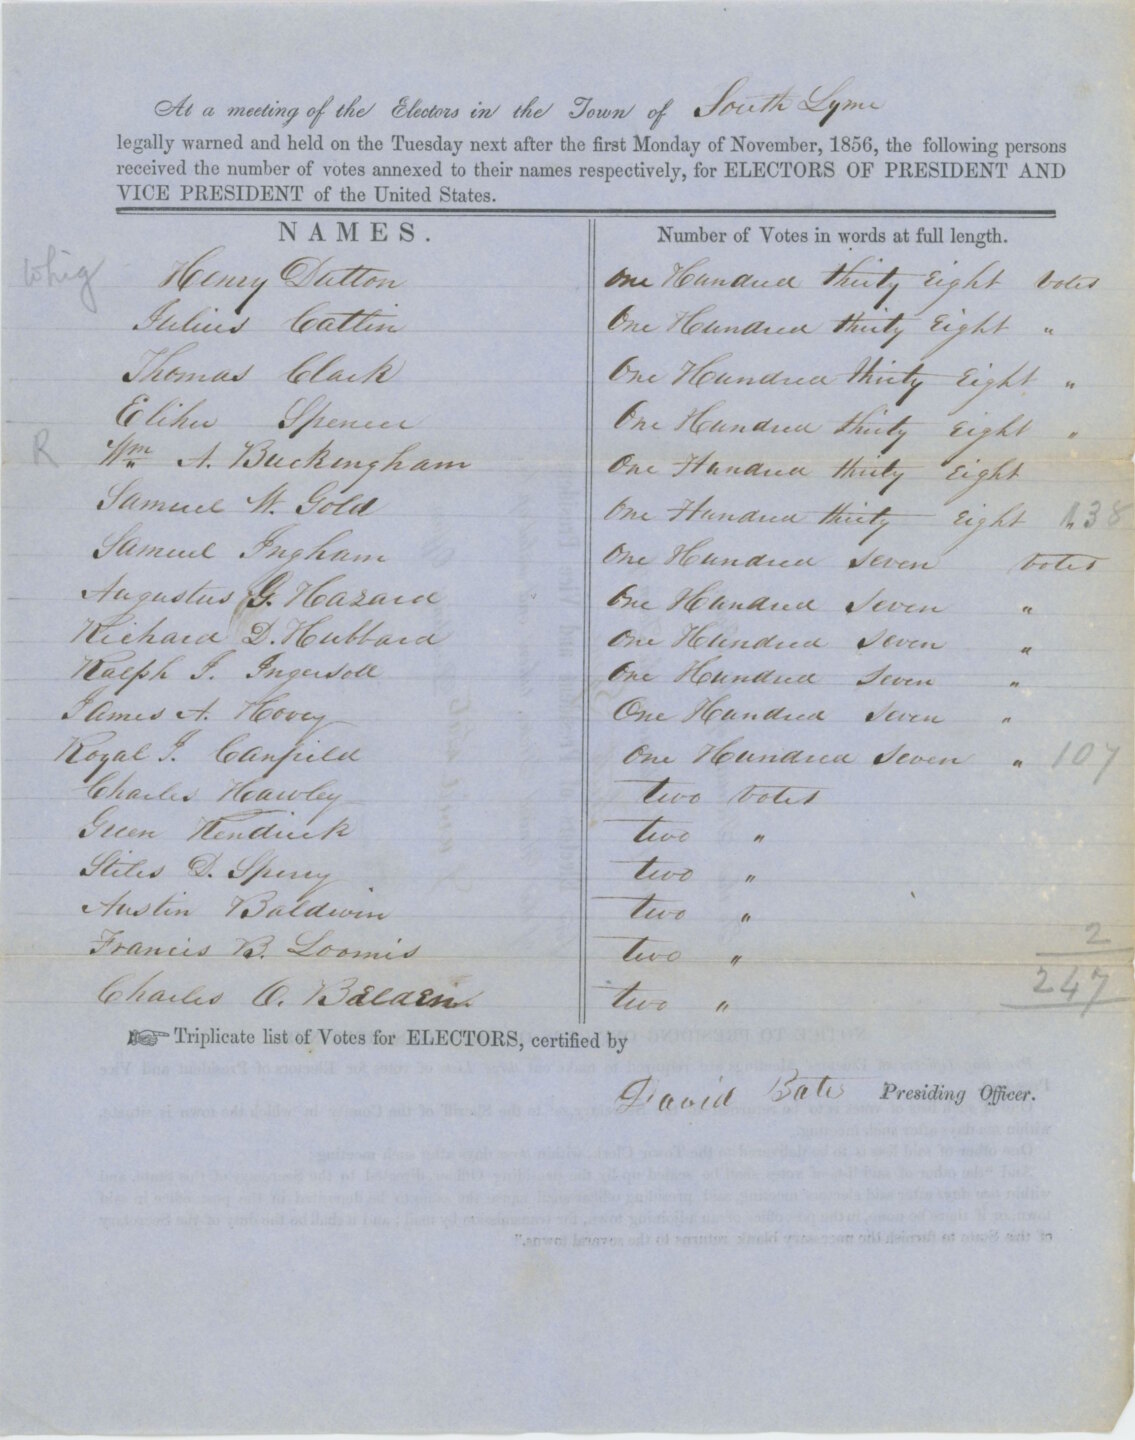 At a meeting of the Electors in the Town of South Lyme
legally warned and held on the Tuesday next after the first Monday of November, 1856, the following persons
received the number of votes annexed to their names respectively, for ELECTORS OF PRESIDENT AND
VICE PRESIDENT of the United States.
NAMES. Number of Votes in words at full length.
Whig Henry Dutton One Hundred thirty Eight votes
Julius Catlin One Hundred thirty Eight "
Thomas Clark One Hundred thirty Eight "
Elihu Spencer One Hundred thirty Eight "
R Wm A. Buckingham One Hundred thirty Eight
Samuel W. Gold One Hundred thirty Eight " 138
Samuel Ingham One Hundred Seven votes
Augustus G. Hazard One Hundred Seven "
Richard D. Hubbard One Hundred Seven "
Ralph I. Ingersoll One Hundred Seven "
James A. Hovey One Hundred Seven "
Royal I. Canfield One Hundred Seven " 107
Charles Hawley two votes
Green Kendrick two "
Stiles D. Sperry two "
Austin Baldwin two "
Francis B. Loomis two " 2
Charles O. Belden. two " 247
☞ Triplicate list of Votes for ELECTORS, certified by
David Bates Presiding Officer.